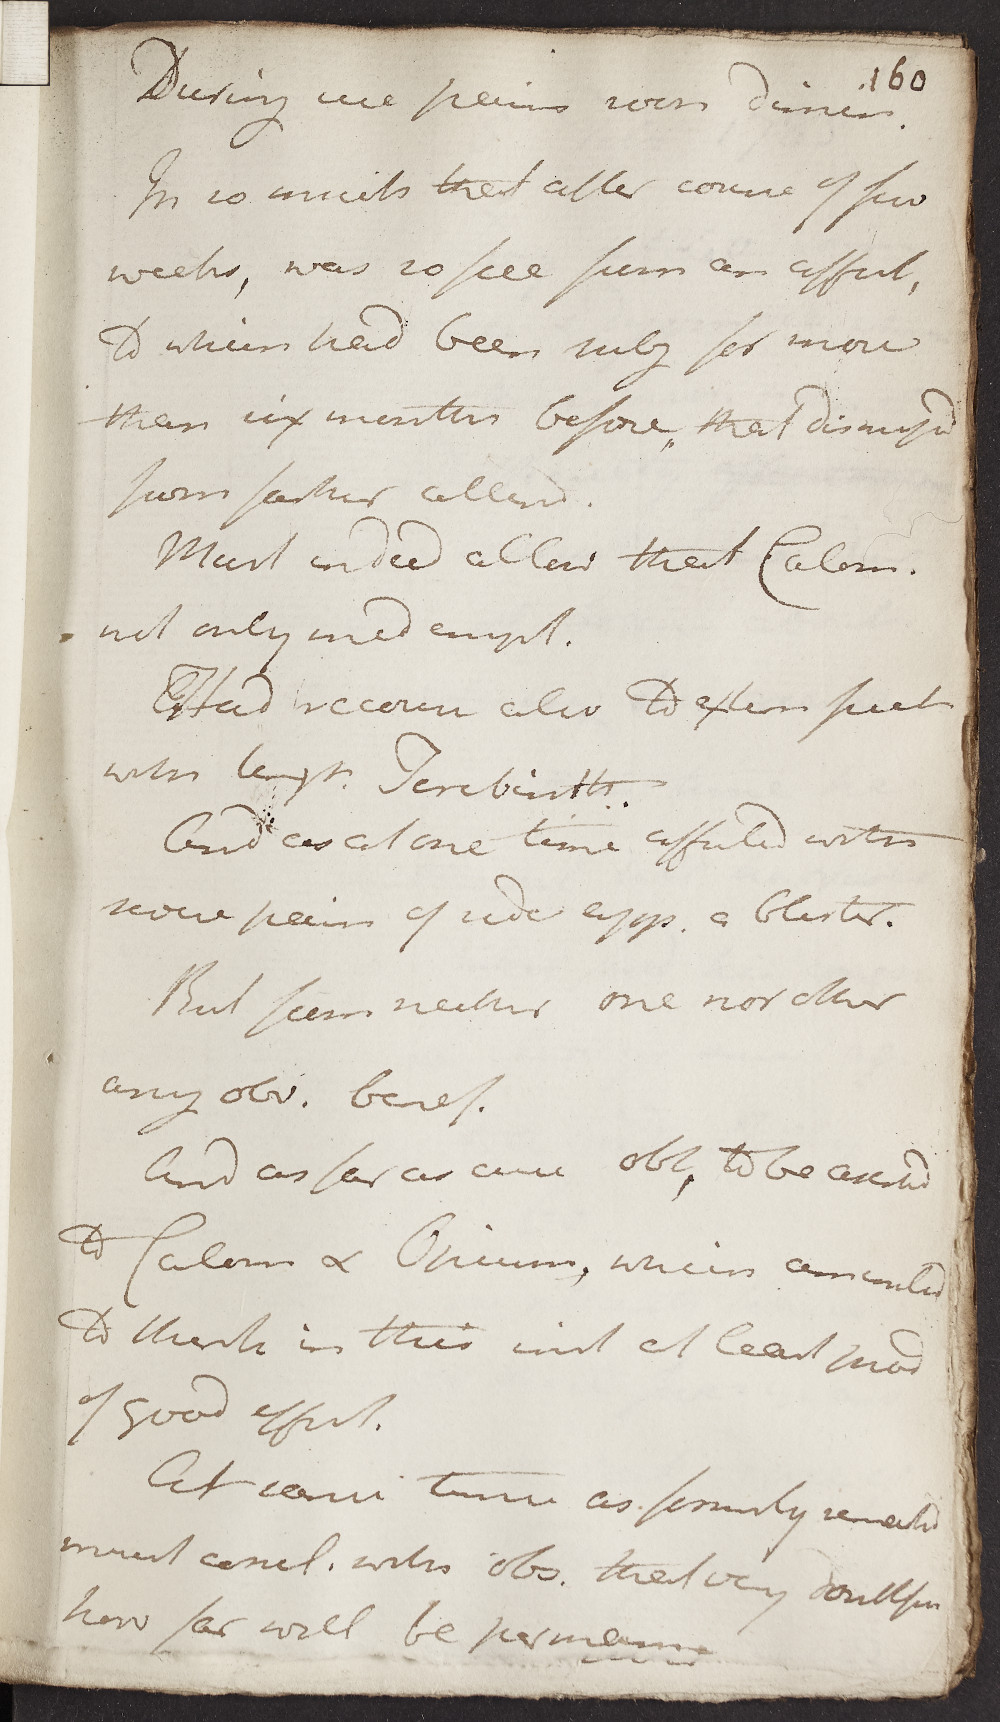 160
During use pains soon dimin.
In so much that after course of few
weeks, was so free from an affect,
to which had been subj for more
than six months before, that dismiss'd
from farther attend.
Must indeed allow that Calom.
not only med empl.
Had recourse also to extern frict
with Terebinth.
And as at one time affected with
severe pain of side app. a blister.
But from neither one nor other
any obv. benef.
And as far as case obs, to be ascribd
to Calom & Opium, which amounted
to think in this inst at least prod
of good effect.
At same time as formerly remarkd
must concl. with obs. that very doubtful
how far will be permanent